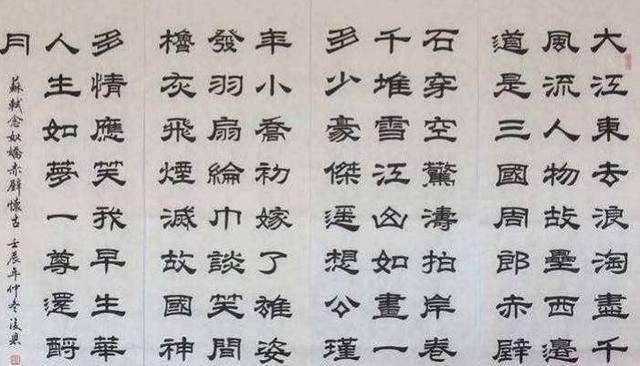 大江東去浪淘盡千
風流人物故壘西邊
道是三國周郎赤壁
石穿空驚濤拍岸卷
千堆雪江山如畫一
多少豪傑遙想公瑾
年小喬初嫁了雄姿
發羽扇綸巾談笑間
櫓灰飛煙滅故國神
多情應笑我早生華
人生如夢一尊還酹
月
蘇軾念奴嬌赤壁懷古 壬辰年仲冬